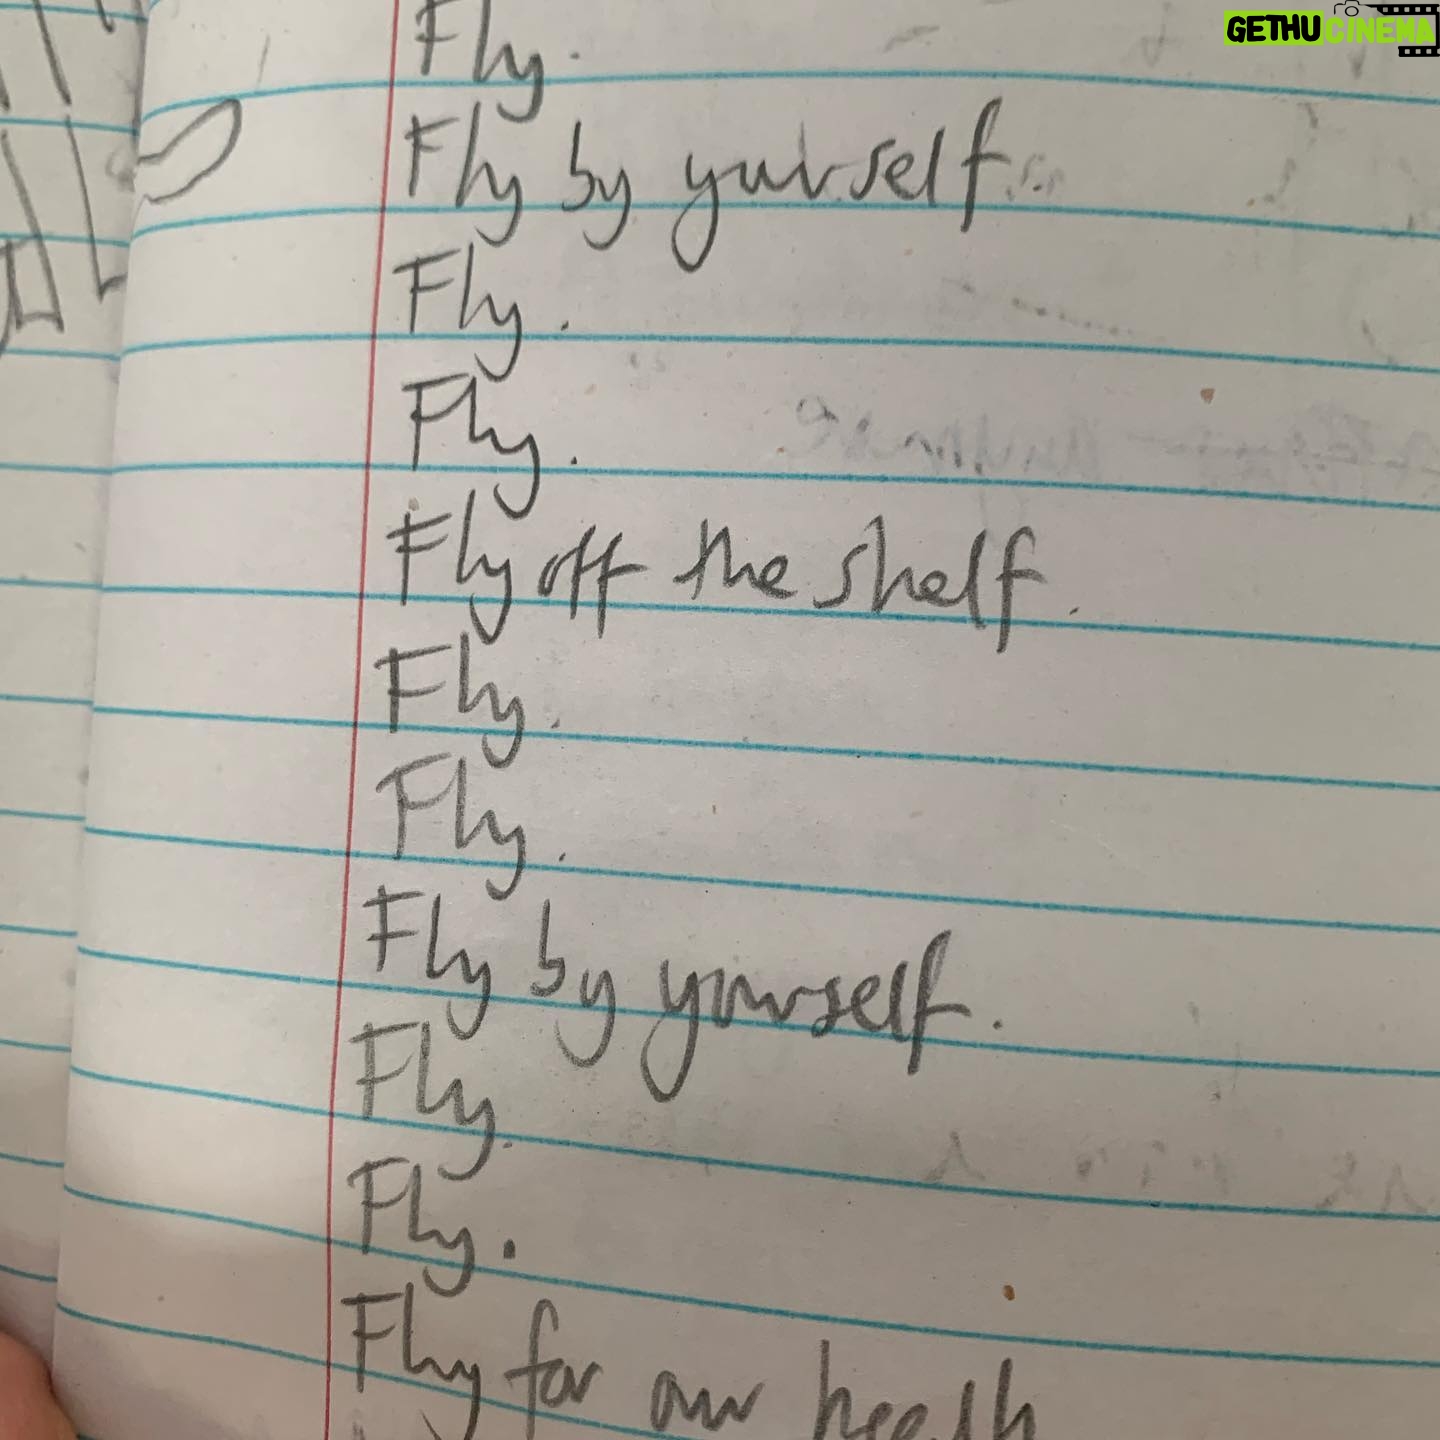 GETHU CINEMA
Fly.
Fly by yourself.
Fly.
Fly.
Fly off the shelf.
Fly.
Fly.
Fly by yourself.
Fly.
Fly.
Fly for our